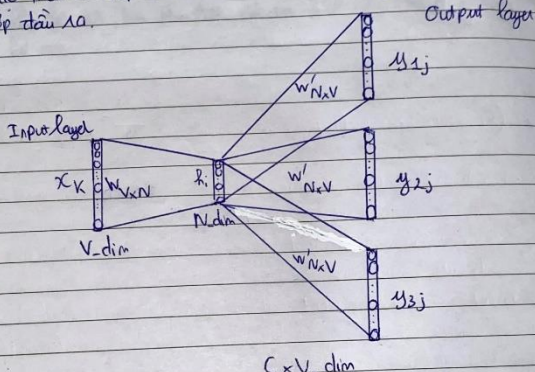 đầu ra.
Output layer
y1j
W'NxV
Input layer
xK
WVxN
hi
W'NxV
y2j
V_dim
N_dim
W'NxV
y3j
C x V_dim